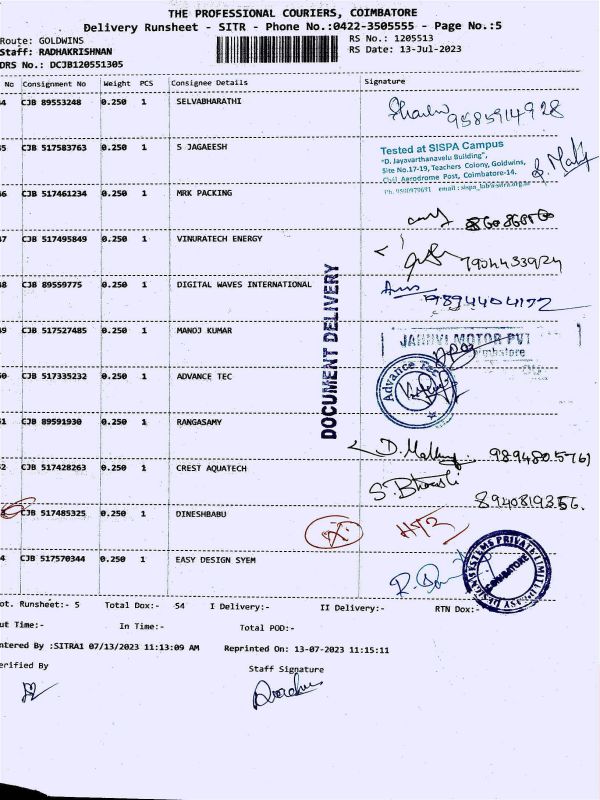 THE PROFESSIONAL COURIERS, COIMBATORE
Delivery Runsheet - SITR - Phone No.:0422-3505555 - Page No.:5
Route: GOLDWINS
RS No.: 1205513
Staff: RADHAKRISHNAN
RS Date: 13-Jul-2023
DRS No.: DCJB120551305
No Consignment No Weight PCS Consignee Details Signature
4 CJB 89553248 0.250 1 SELVABHARATHI
9585914928
5 CJB 517583763 0.250 1 S JAGAEESH
Tested at SISPA Campus
"D. Jayavarthanavelu Building",
Site No.17-19, Teachers Colony, Goldwins,
Civil Aerodrome Post, Coimbatore-14.
6 CJB 517461234 0.250 1 MRK PACKING
7 CJB 517495849 0.250 1 VINURATECH ENERGY
7904433924
8 CJB 89559775 0.250 1 DIGITAL WAVES INTERNATIONAL
9894404172
DOCUMENT DELIVERY
9 CJB 517527485 0.250 1 MANOJ KUMAR
JAHNVI MOTOR PVT
0 CJB 517335232 0.250 1 ADVANCE TEC
Advance Tec
1 CJB 89591930 0.250 1 RANGASAMY
9894805761
2 CJB 517428263 0.250 1 CREST AQUATECH
S. Bharathi
8940819356.
3 CJB 517485325 0.250 1 DINESHBABU
4 CJB 517570344 0.250 1 EASY DESIGN SYEM
EASY DESIGN SYSTEMS PRIVATE LIMITED
COIMBATORE
ot. Runsheet:- 5 Total Dox:- 54 I Delivery:- II Delivery:- RTN Dox:-
ut Time:- In Time:- Total POD:-
ntered By :SITRA1 07/13/2023 11:13:09 AM Reprinted On: 13-07-2023 11:15:11
erified By Staff Signature